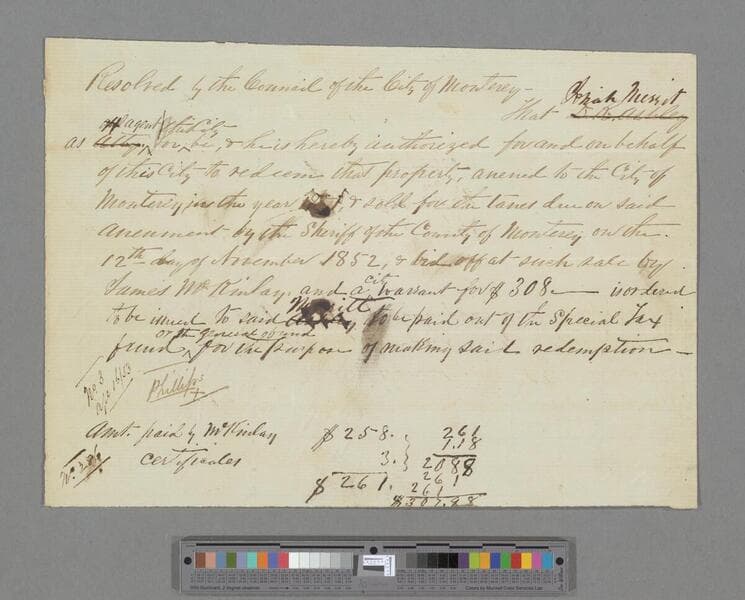 Resolved by the Council of the City of Monterey -
That Josiah Merrit D. R. Ashley
as Atty, agent of this City
for, be, & he is hereby authorized for and on behalf
of this City to redeem that property, assessed to the City of
Monterey in the year 1851, & sold for the taxes due on said
assessment by the Sheriff of the County of Monterey on the
12th day of November 1852, & bid off at such sale by
James McKinlay. and a city warrant for $ 308 — is ordered
to be issued to said Merritt to be paid out of the Special Tax
fund or the general fund for the purpose of making said redemption —
No 3
Apl 16/53
Phillips
Amt. paid by McKinlay $ 258.
certificates 3.
$ 261.
261
1.18
2088
261
261
$307.98